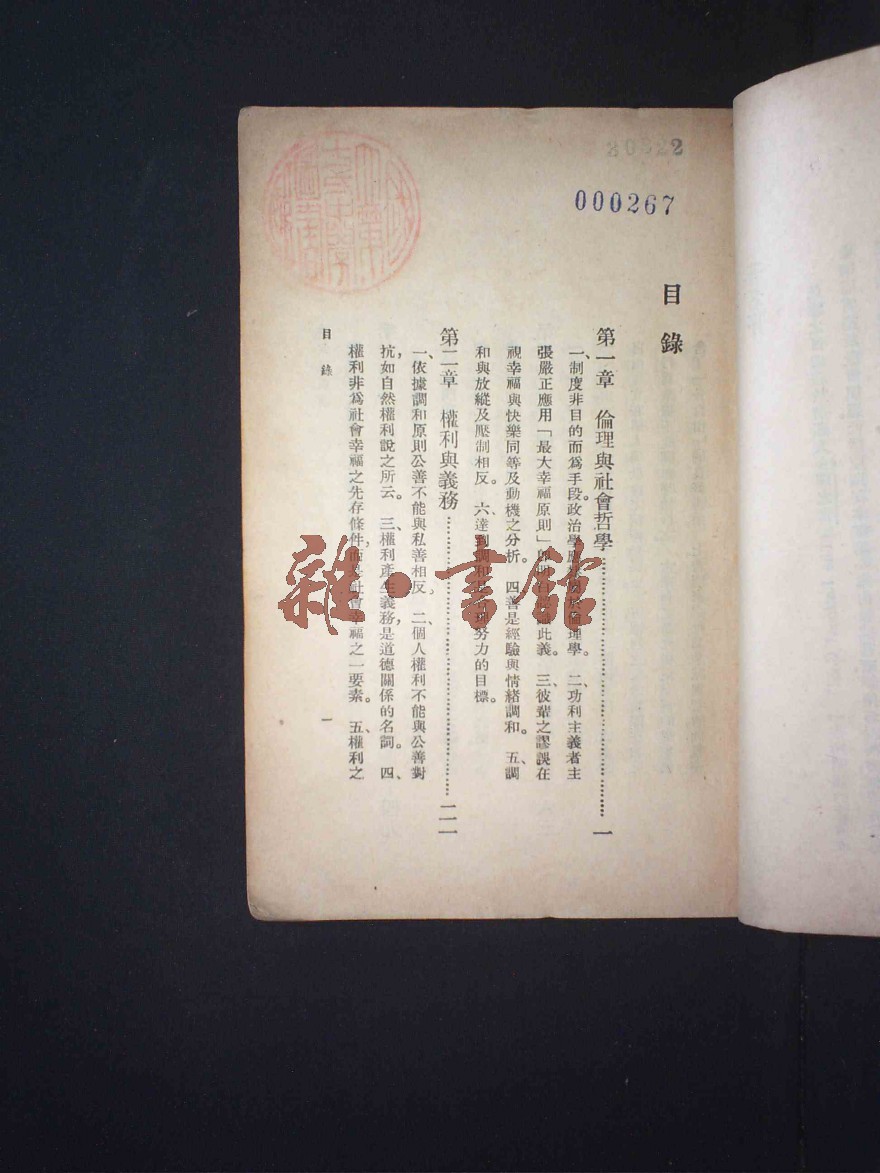 30522
000267
目錄
第一章 倫理與社會哲學……一
一、制度非目的而為手段。政治學應 於倫理學。 二、功利主義者主
張嚴正應用「最大幸福原則」 此義。 三、彼輩之謬誤在
視幸福與快樂同等及動機之分析。 四、善是經驗與情緒調和。 五、調
和與放縱及壓制相反。 六、達到調和 努力的目標。
第二章 權利與義務……二一
一、依據調和原則公善不能與私善相反。 二、個人權利不能與公善對
抗,如自然權利說之所云。 三、權利產生義務,是道德關係的名詞。 四、
權利非為社會幸福之先存條件,而是社會幸福之一要素。 五、權利之
目錄
一
雜·書館